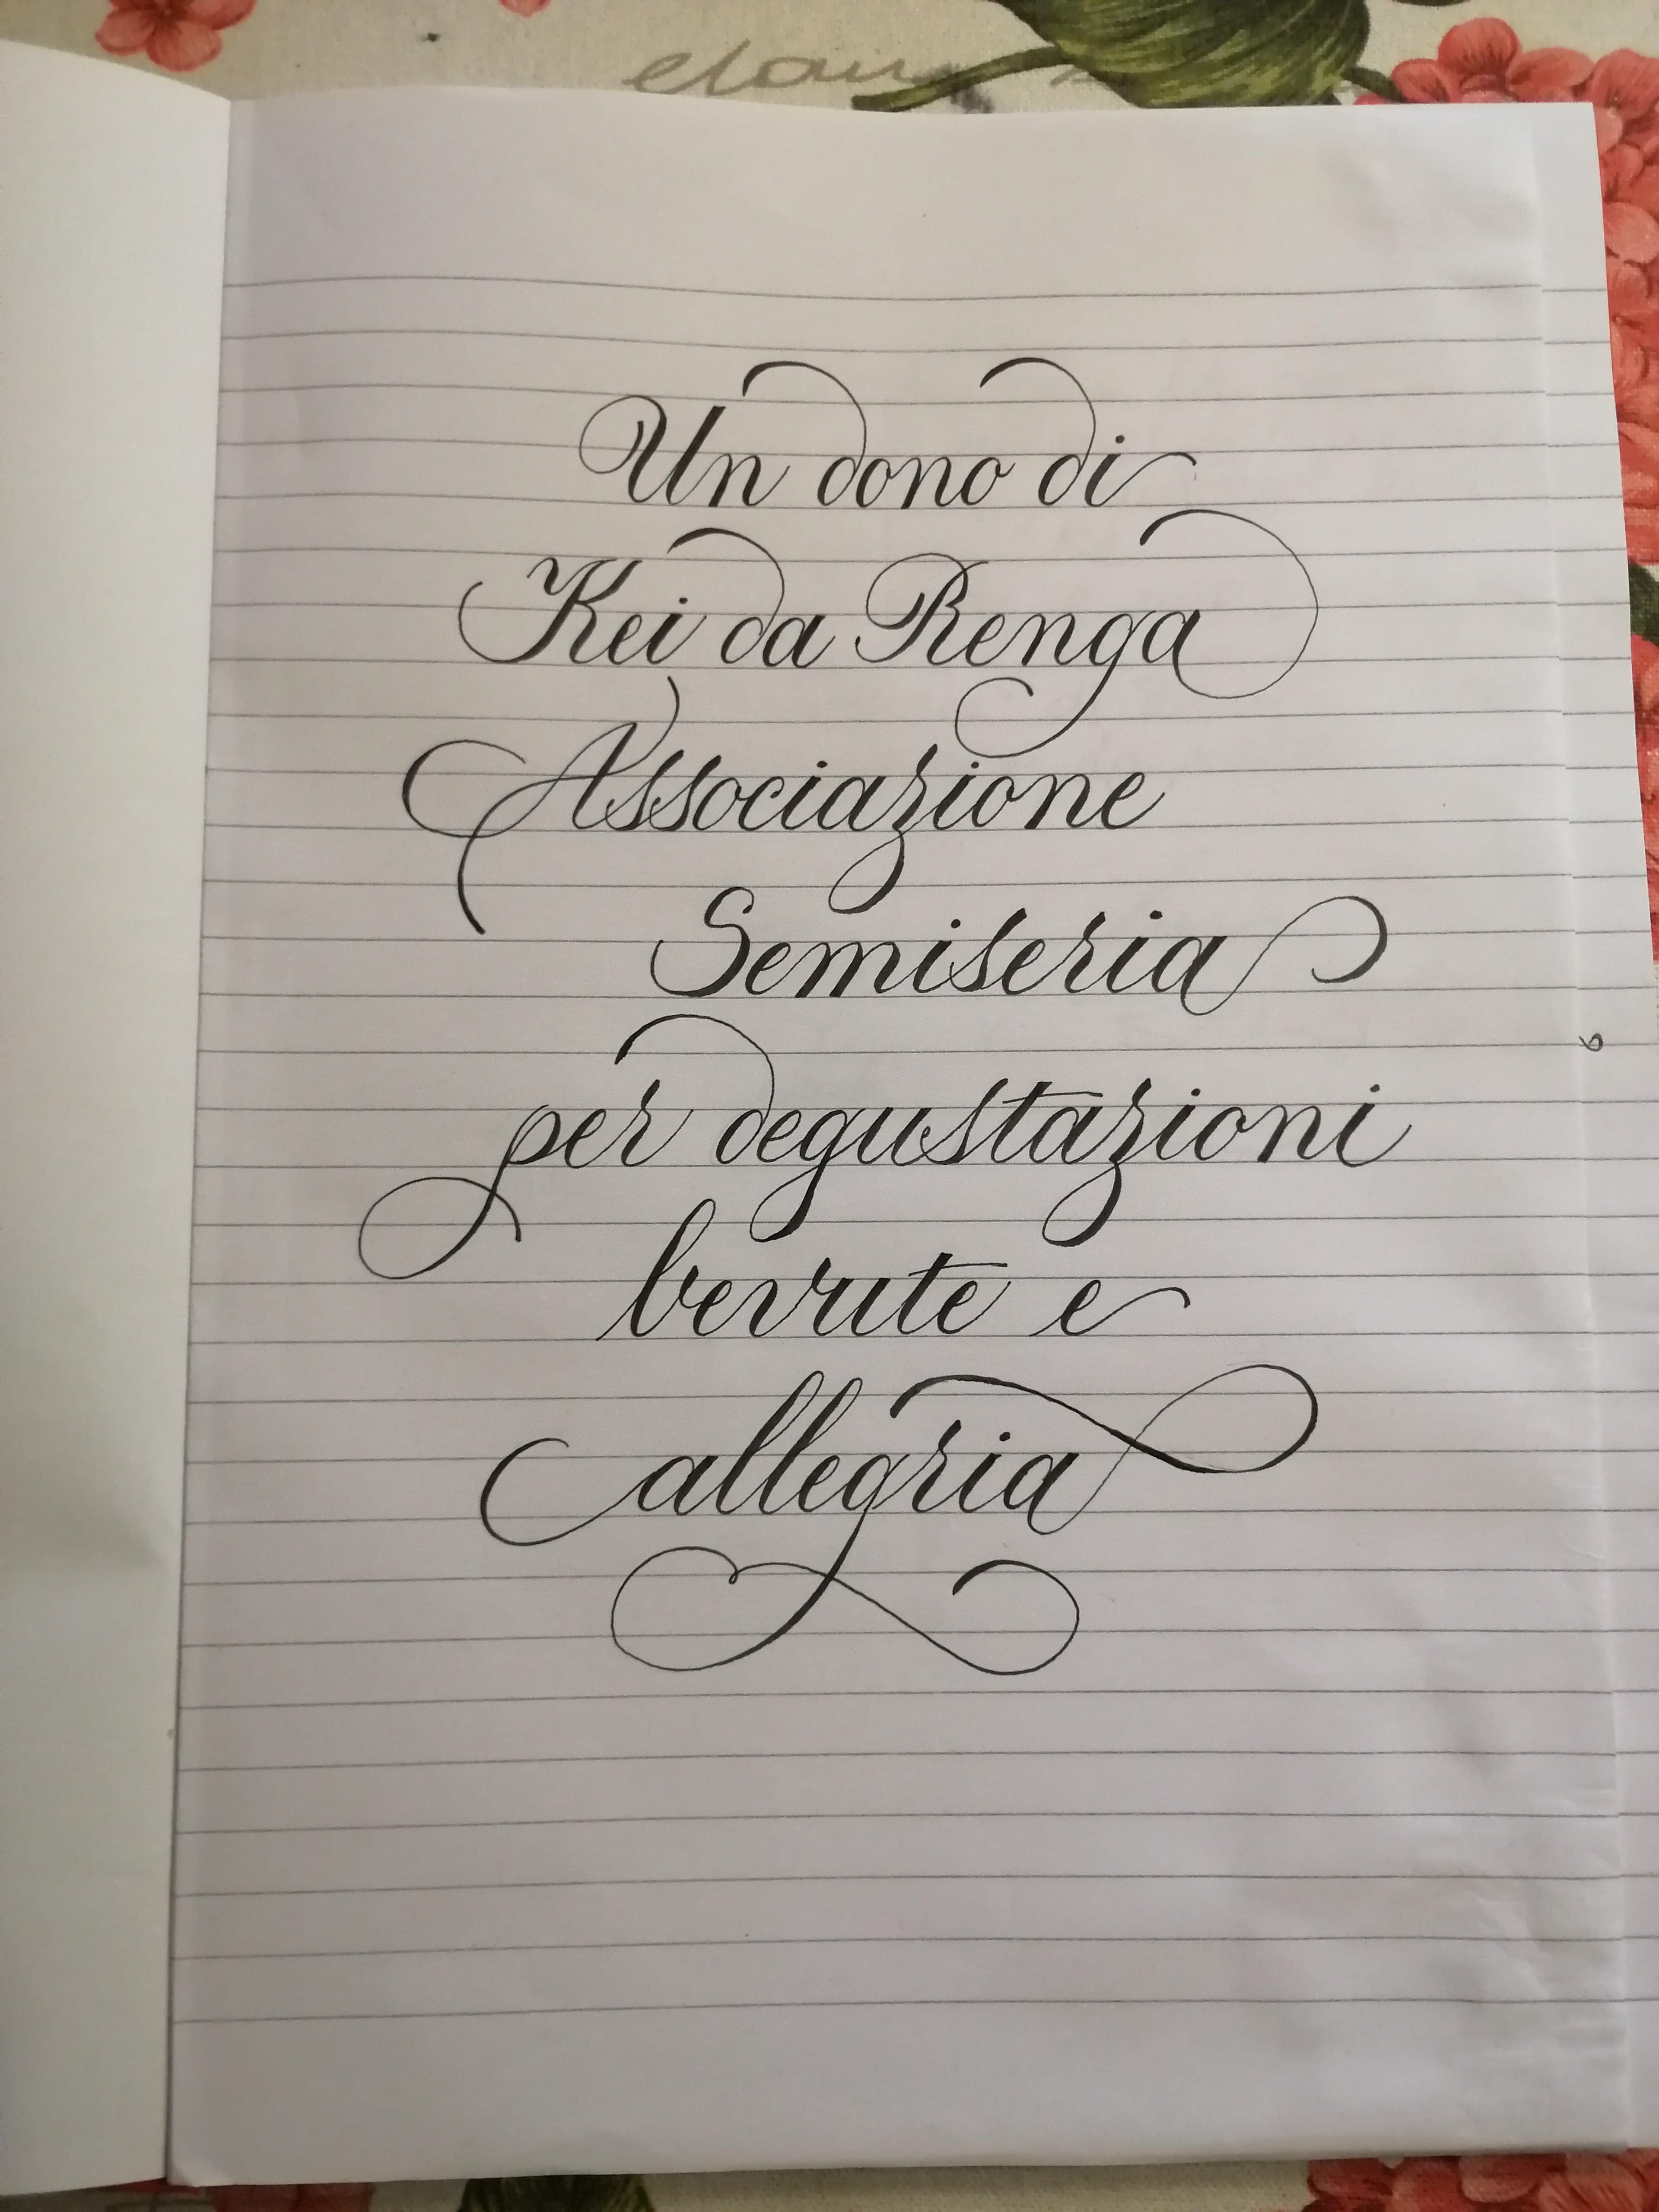 Un dono di
Kei da Renga
Associazione
Semiseria
per degustazioni
bevute e
allegria